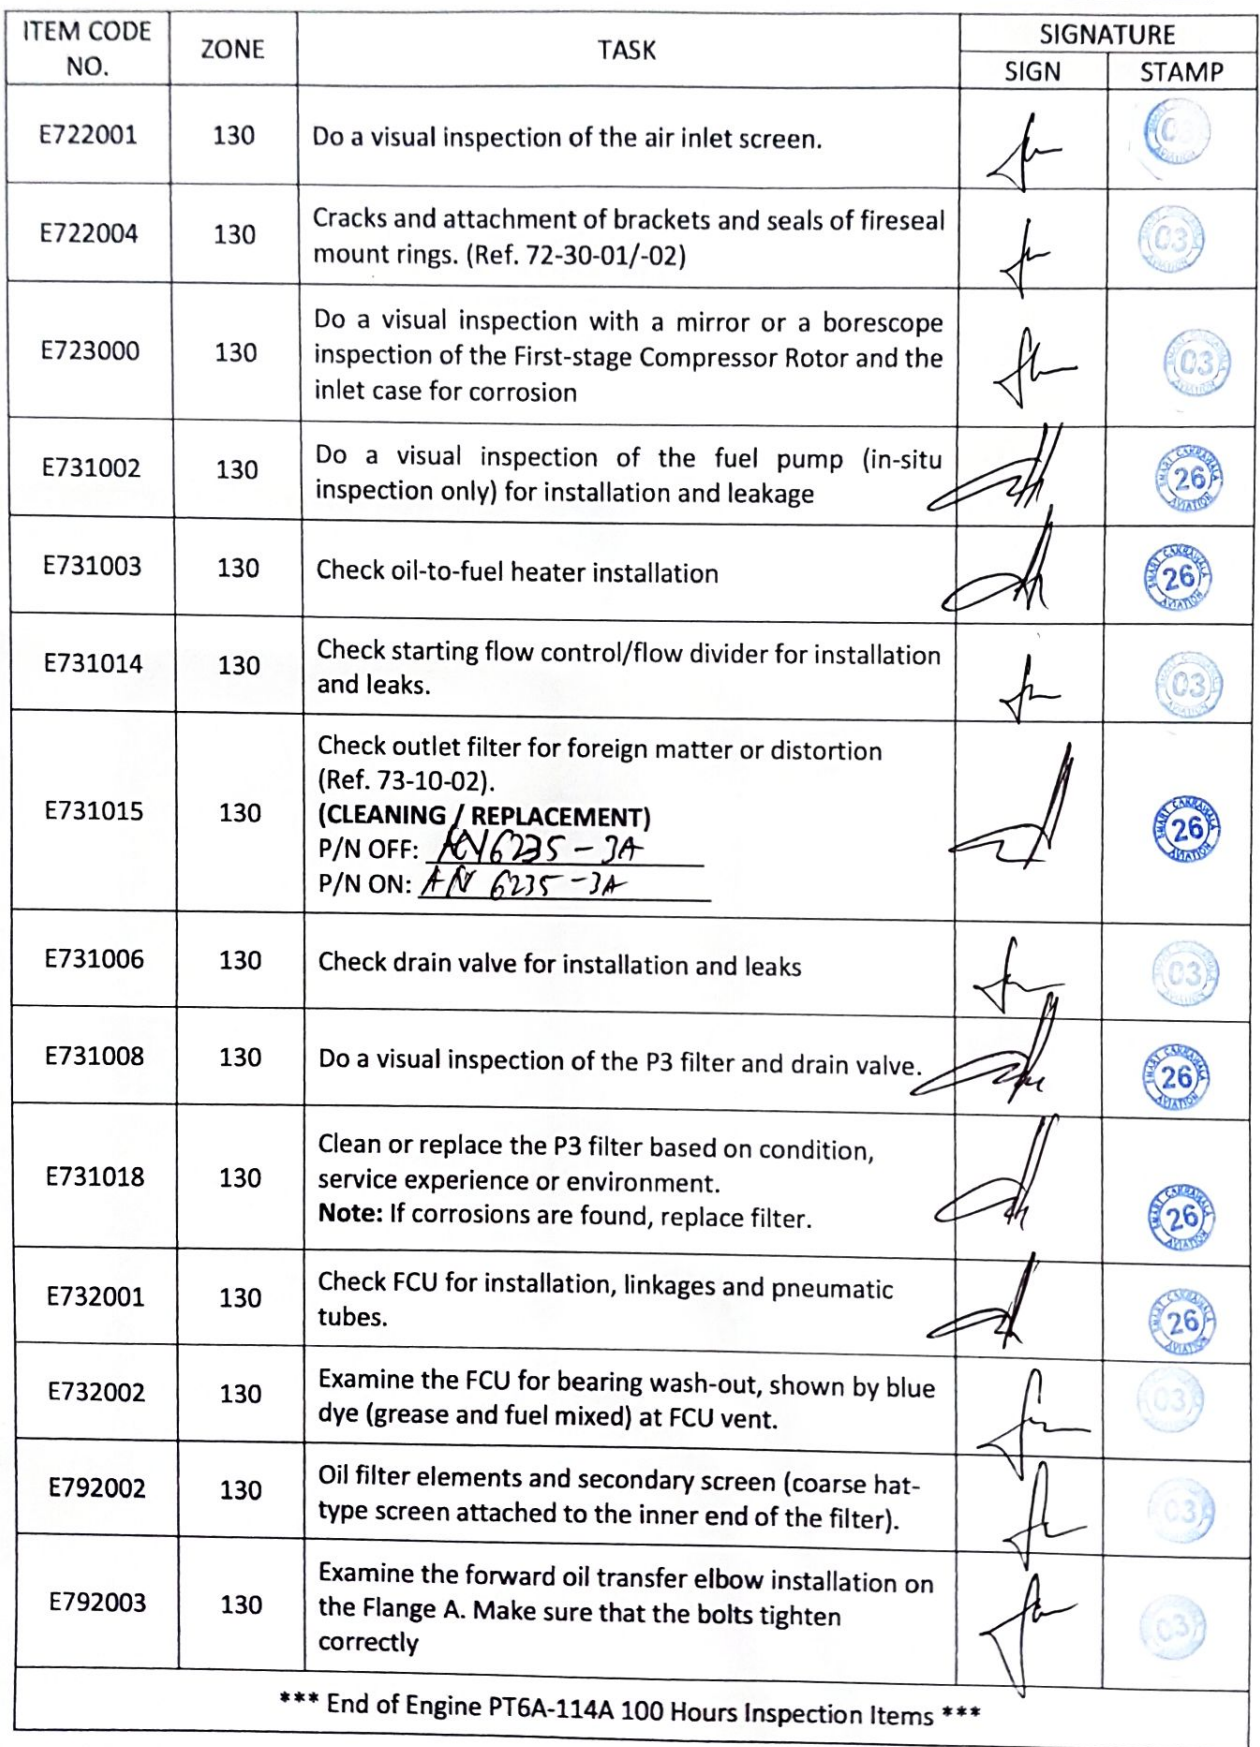 ITEM CODE NO.
ZONE
TASK
SIGNATURE
SIGN
STAMP
E722001
130
Do a visual inspection of the air inlet screen.
03
AVIATION
E722004
130
Cracks and attachment of brackets and seals of fireseal
mount rings. (Ref. 72-30-01/-02)
03
E723000
130
Do a visual inspection with a mirror or a borescope
inspection of the First-stage Compressor Rotor and the
inlet case for corrosion
03
E731002
130
Do a visual inspection of the fuel pump (in-situ
inspection only) for installation and leakage
SMART CAKRAWALA
26
AVIATION
E731003
130
Check oil-to-fuel heater installation
SMART CAKRAWALA
26
AVIATION
E731014
130
Check starting flow control/flow divider for installation
and leaks.
03
E731015
130
Check outlet filter for foreign matter or distortion
(Ref. 73-10-02).
(CLEANING / REPLACEMENT)
P/N OFF: AN6235-3A
P/N ON: AN 6235-3A
SMART CAKRAWALA
26
AVIATION
E731006
130
Check drain valve for installation and leaks
03
E731008
130
Do a visual inspection of the P3 filter and drain valve.
SMART CAKRAWALA
26
AVIATION
E731018
130
Clean or replace the P3 filter based on condition,
service experience or environment.
Note: If corrosions are found, replace filter.
SMART CAKRAWALA
26
AVIATION
E732001
130
Check FCU for installation, linkages and pneumatic
tubes.
SMART CAKRAWALA
26
AVIATION
E732002
130
Examine the FCU for bearing wash-out, shown by blue
dye (grease and fuel mixed) at FCU vent.
03
E792002
130
Oil filter elements and secondary screen (coarse hat-
type screen attached to the inner end of the filter).
03
E792003
130
Examine the forward oil transfer elbow installation on
the Flange A. Make sure that the bolts tighten
correctly
03
*** End of Engine PT6A-114A 100 Hours Inspection Items ***